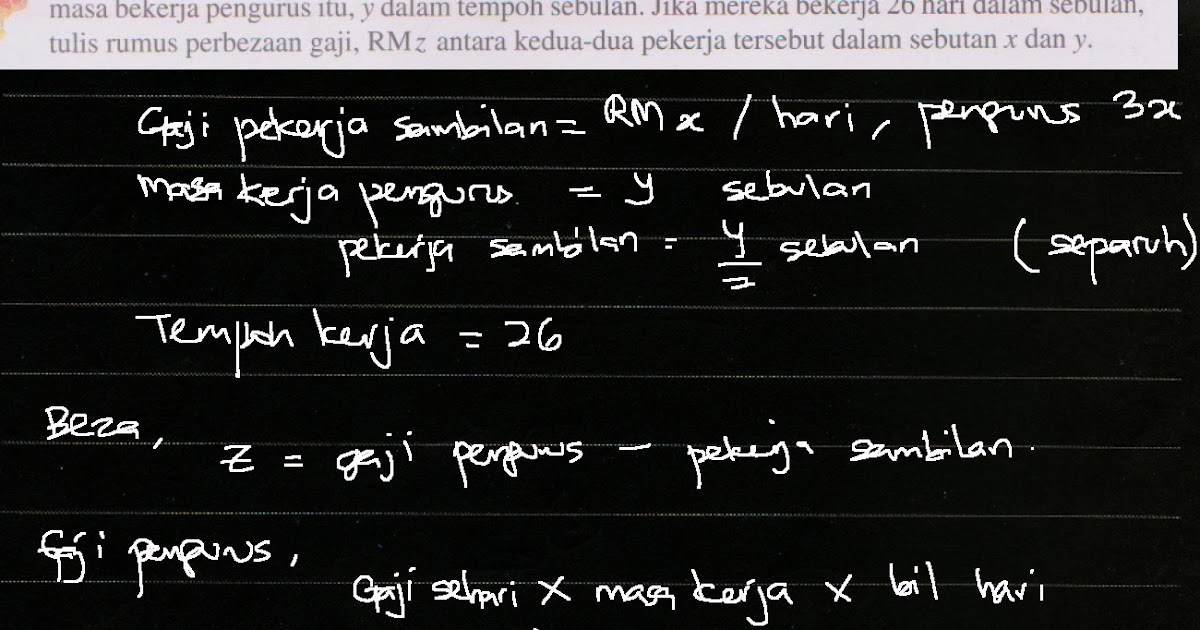 masa bekerja pengurus itu, y dalam tempoh sebulan. Jika mereka bekerja 26 hari dalam sebulan,
tulis rumus perbezaan gaji, RMz antara kedua-dua pekerja tersebut dalam sebutan x dan y.
Gaji pekerja sambilan = RM x / hari, pengurus 3x
masa kerja pengurus. = y sebulan
pekerja sambilan = y/2 sebulan (separuh)
Tempoh kerja = 26
Beza,
z = gaji pengurus - pekerja sambilan.
Gaji pengurus,
Gaji sehari × masa kerja × bil hari